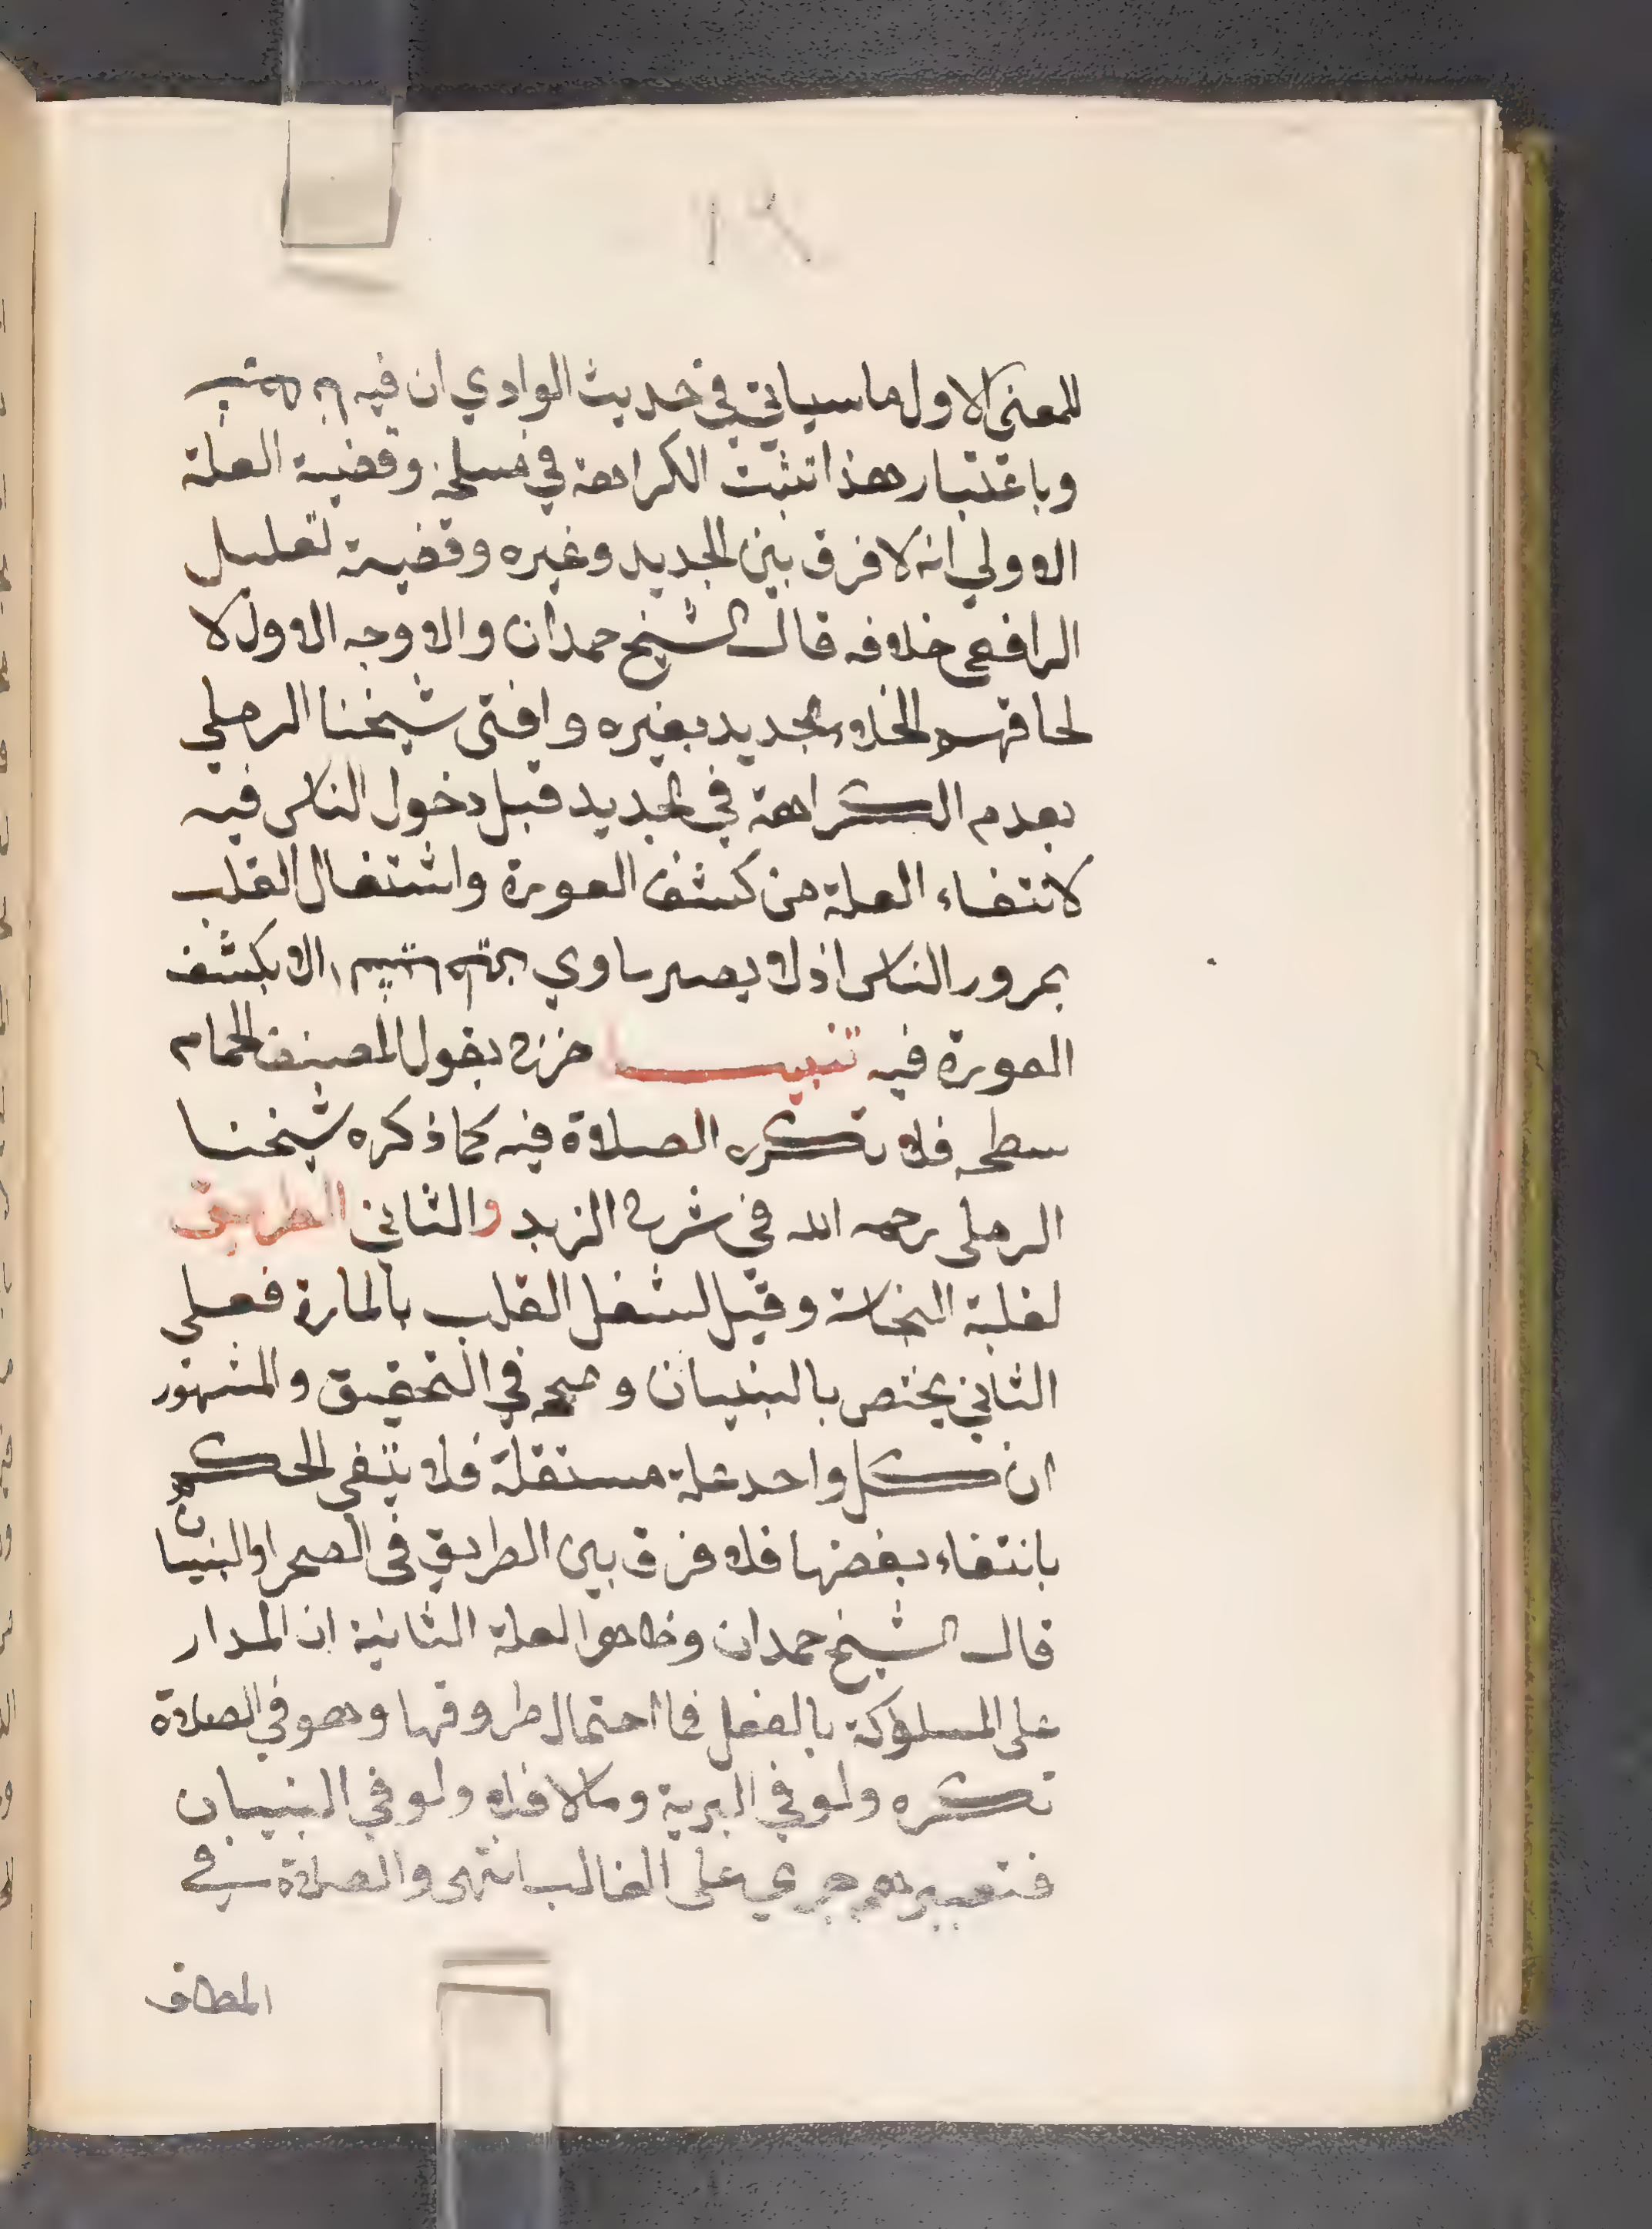 ١٦
للمعنى الاول ما سياتي في حديث الوادي ان فيه
وباعتبار هذا تثبت الكراهة في مسلخه وقضية العلة
الاولي انه لا فرق بين الجديد وغيره وقضية تعليل
الرافعي خلافه قال الشيخ حمدان والاوجه الاول لا
لحاقهم الخلاء الجديد بغيره وافتى شيخنا الرملي
بعدم الكراهة في الجديد قبل دخول الناس فيه
لانتفاء العلة من كشف العورة واشتغال القلب
بمرور الناس اذ لا يصير ماوي الا بكشف
العورة فيه تنبيه خرج بقول المصنف الحمام
سطحه فلا تكره الصلاة فيه كما ذكره شيخنا
الرملي رحمه الله في شرح الزبد والثاني الطريق
لغلبة النجاسة وقيل لشغل القلب بالمارة فعلي
الثاني يختص بالبنيان وصححه في التحقيق والمشهور
ان كل واحد علة مستقلة فلا ينتفي الحكم
بانتفاء بعضها فلا فرق بين الطريق في الصحرا والبنيان
قال الشيخ حمدان وظاهر العلة الثانية ان المدار
على المسلوكة بالفعل فما احتمال طروقها وهو في الصلاة
تكره ولو في البرية وما لا فلا ولو في البنيان
فتعبيرهم جري على الغالب انتهى والصلاة في
المطاف